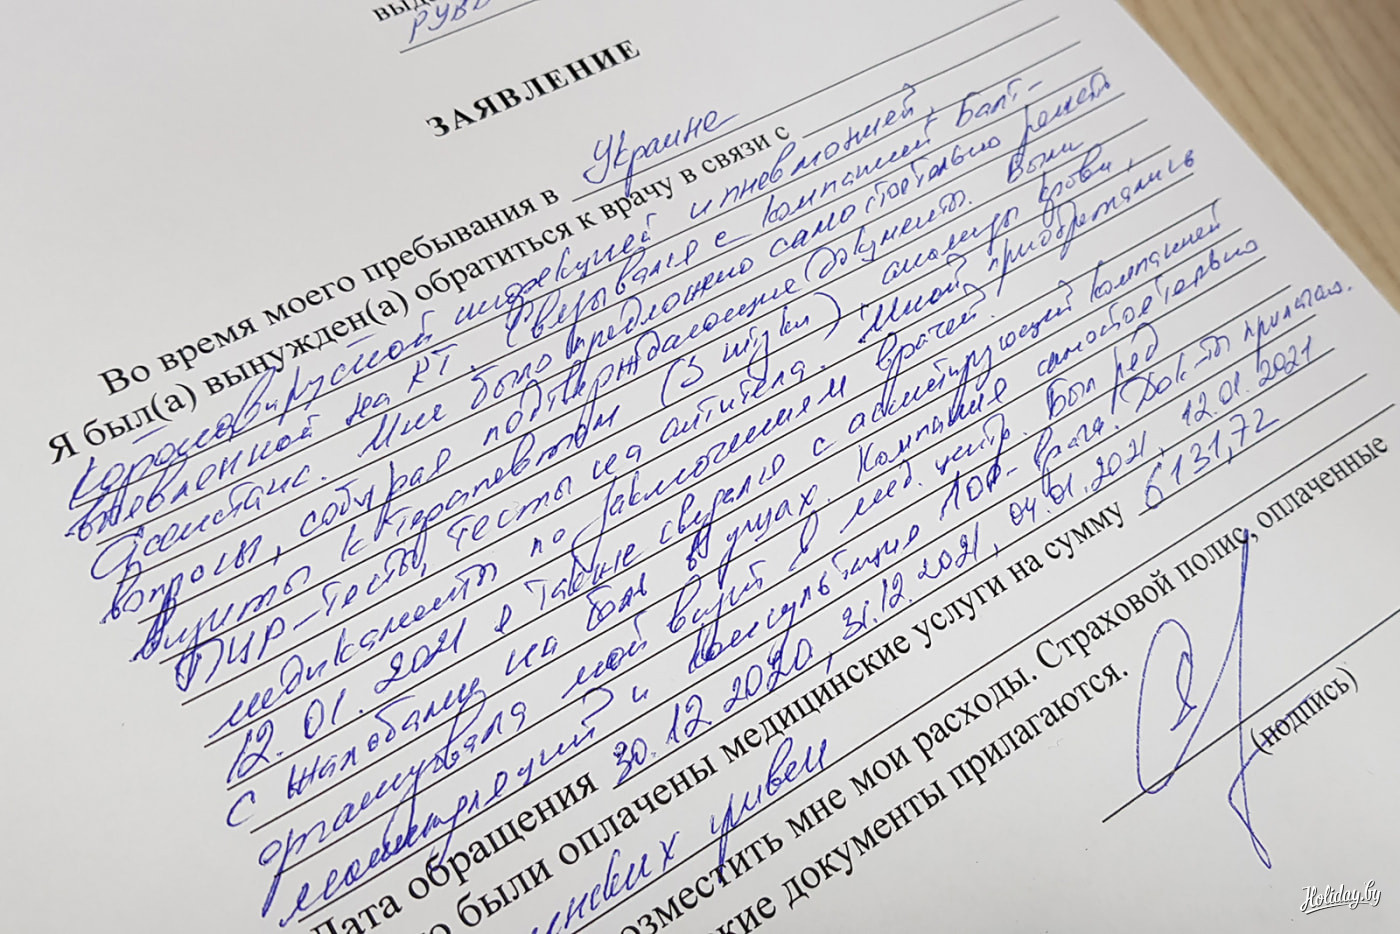 выда
РУВД
ЗАЯВЛЕНИЕ
Во время моего пребывания в Украине
Я был(а) вынужден(а) обратиться к врачу в связи с
коронавирусной инфекцией и пневмонией,
выявленной на КТ. Связывался с компанией Балт-
Ассистанс. Мне было предложено самостоятельно решать
вопросы, собирая подтверждающие документы. Были
визиты к терапевтом (3 штуки), анализы крови,
ПЦР-тесты, тесты на антитела. Мной приобретались
медикаменты по заключениям врачей.
12.01.2021 я также связался с ассистирующей компанией
с жалобами на боль в ушах. Компания самостоятельно
организовала мой визит в мед. центр. Был ряд
и консультация ЛОР-врача. Док-ты прилагаю.
Дата обращения 30.12.2020, 31.12.2021, 04.01.2021, 12.01.2021
о были оплачены медицинские услуги на сумму 6131,72
гривен
озместить мне мои расходы. Страховой полис, оплаченные
кие документы прилагаются.
(подпись)
Holiday.by